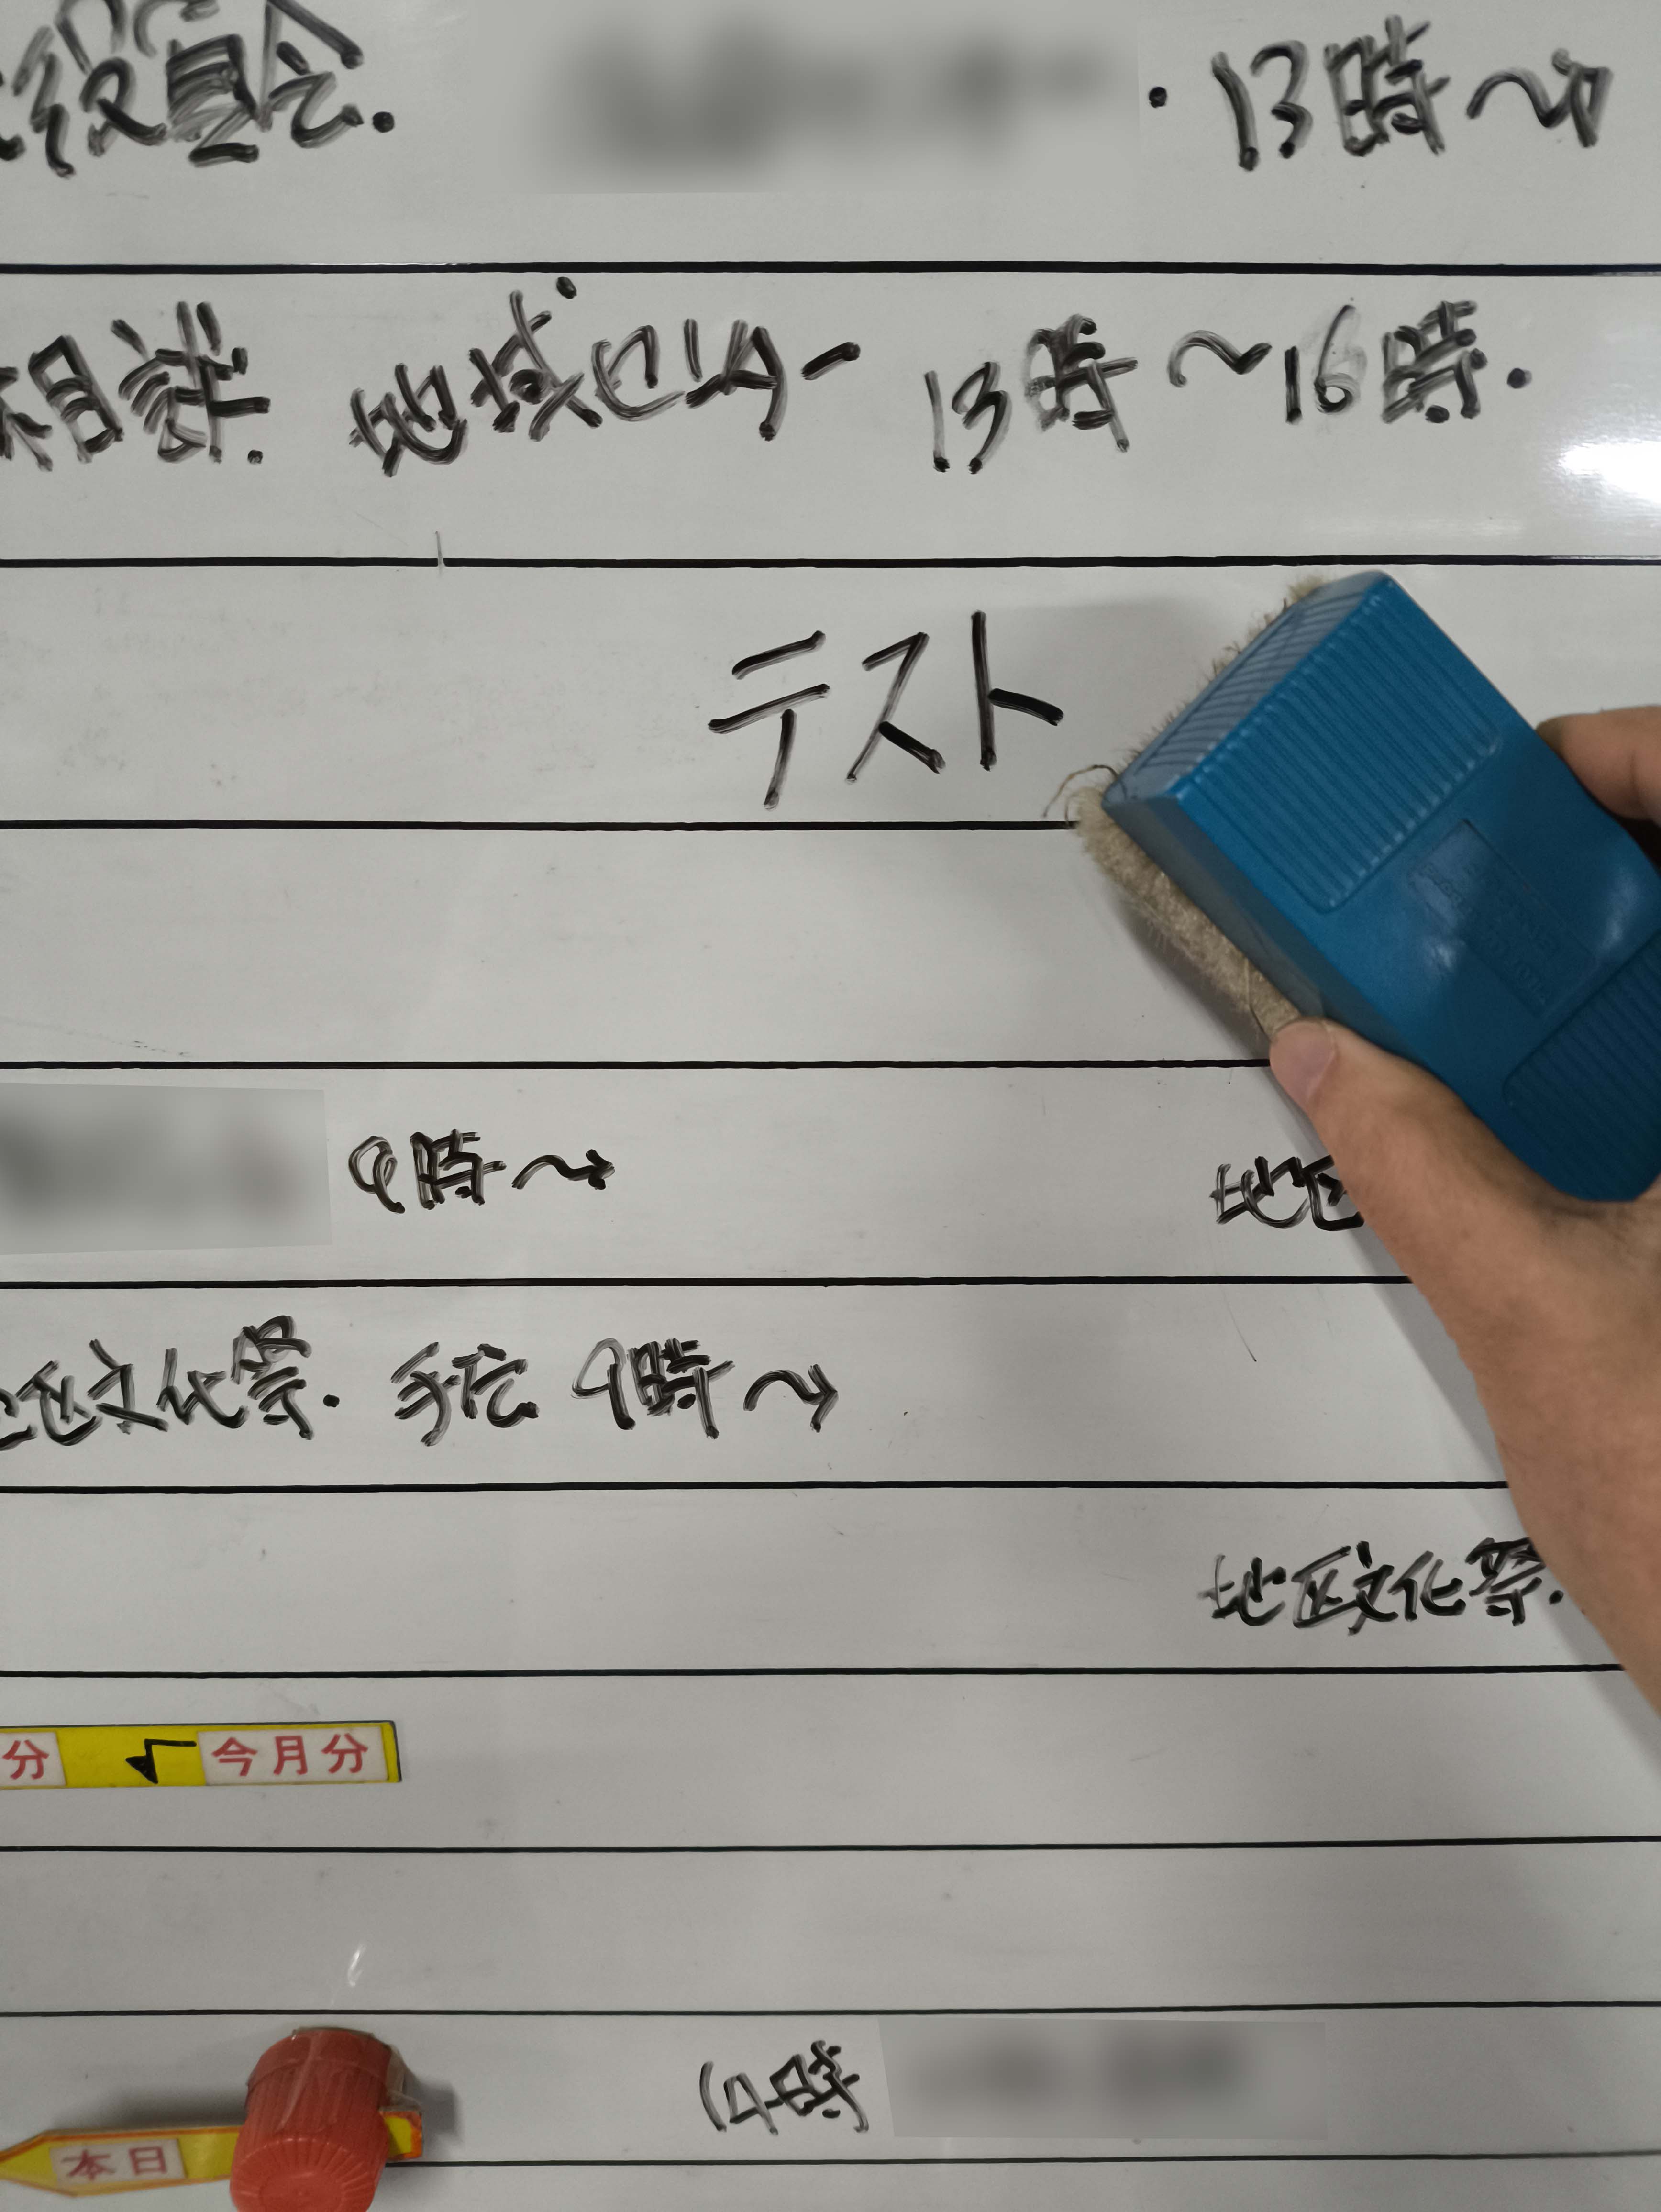 役員会. ・13時〜
相談. 地域センター 13時〜16時.
テスト
9時〜 地区
地区文化祭. 手伝 9時〜
地区文化祭.
分 今月分
14時
本日